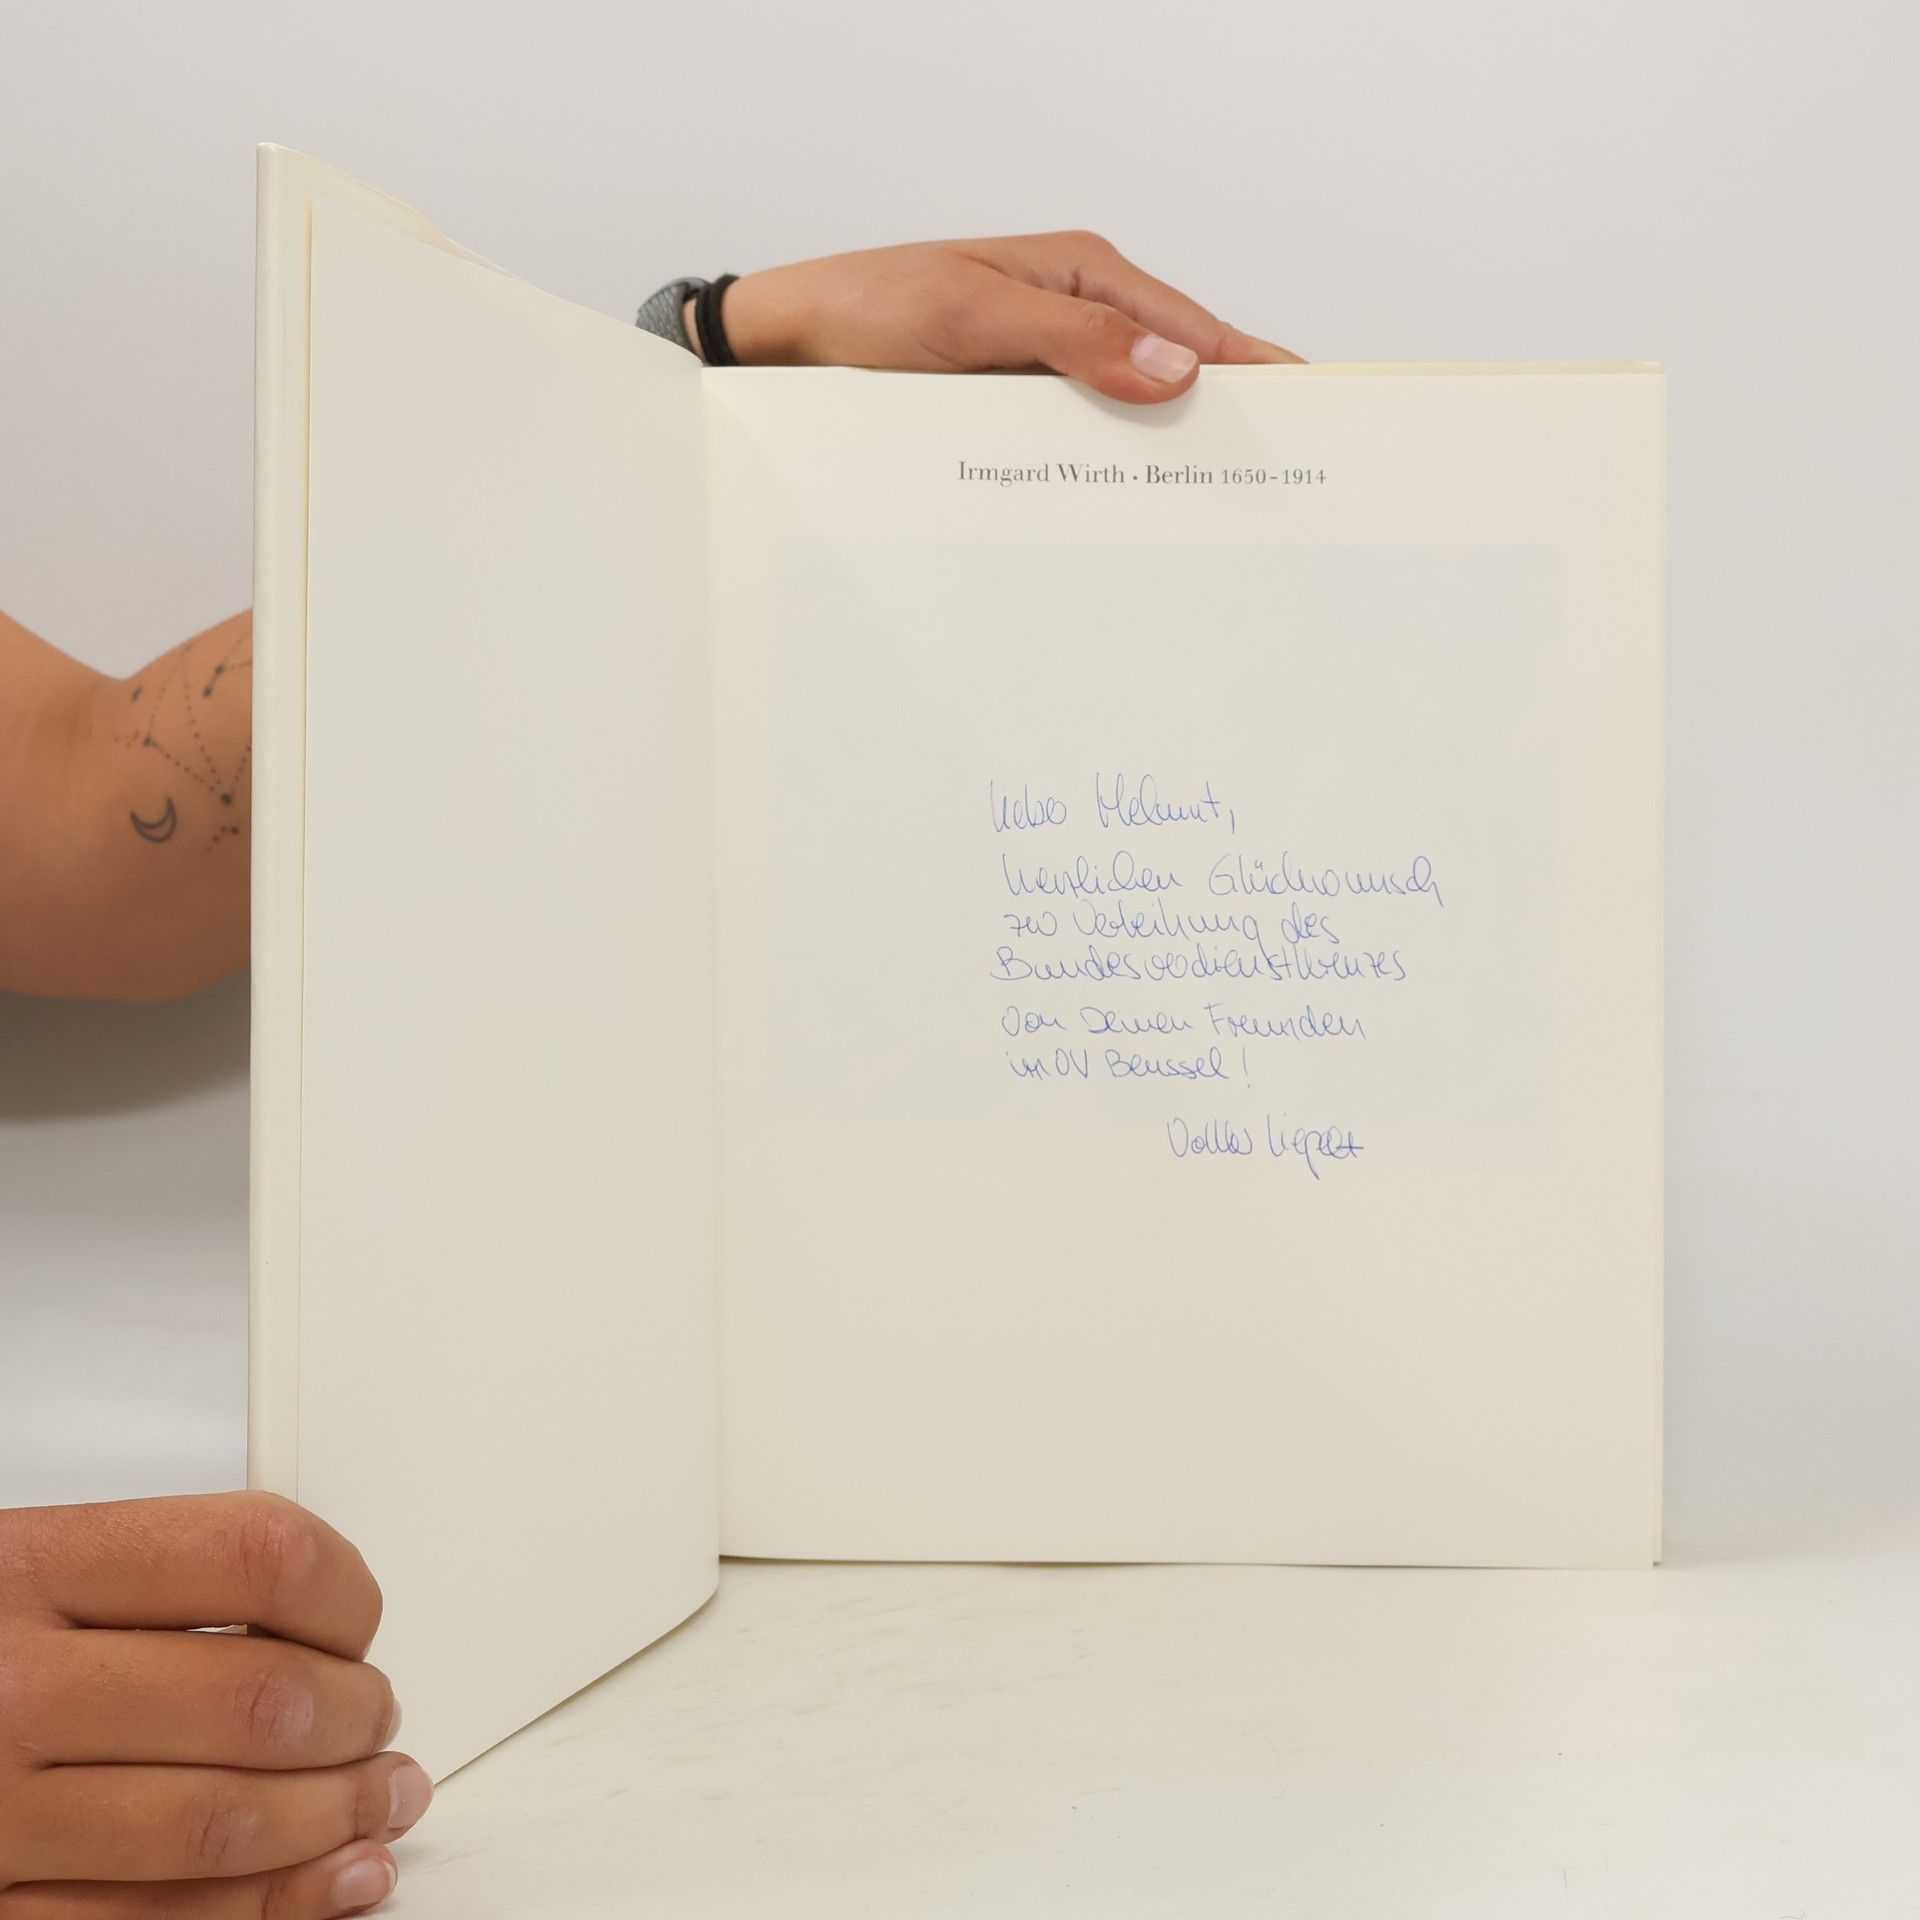 Irmgard Wirth · Berlin 1650-1914
Lieber Helmut,
herzlichen Glückwunsch
zur Verleihung des
Bundesverdienstkreuzes
von Deinen Freunden
im OV Beussel!
Volker Liepelt